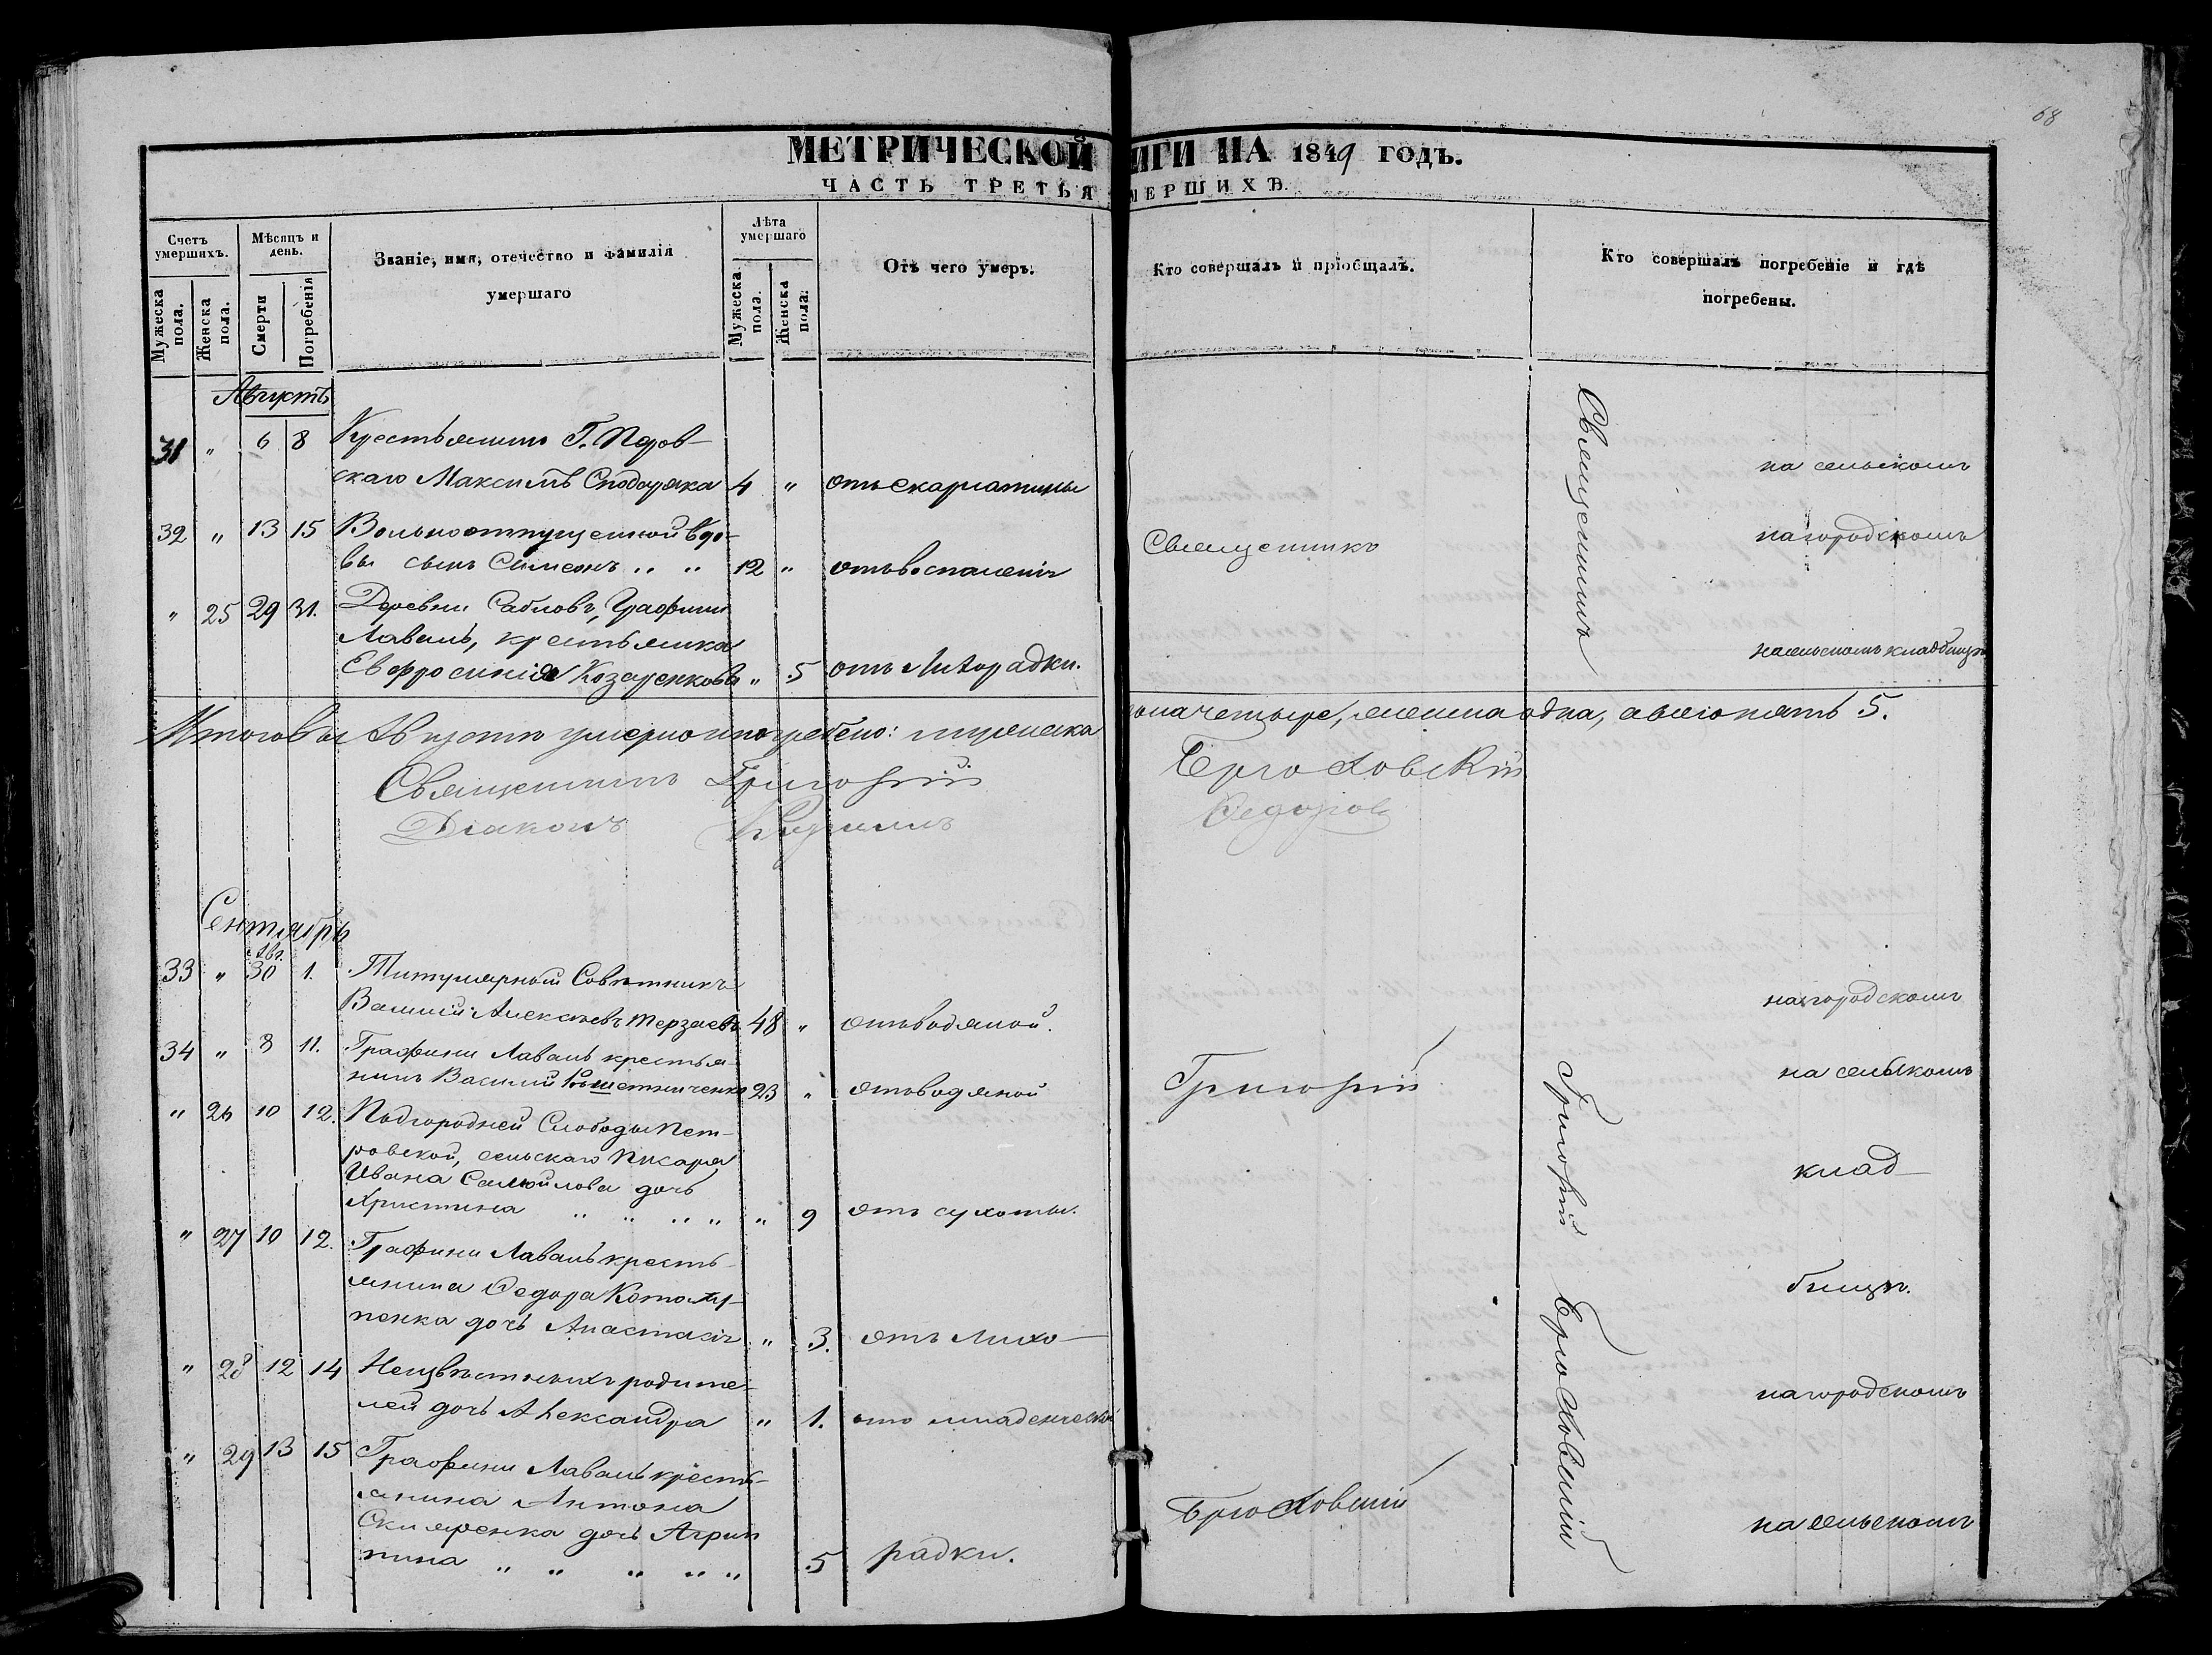 68
МЕТРИЧЕСКОЙ ИГИ НА 1849 ГОДЪ.
ЧАСТЬ ТРЕТЬЯ МЕРШИХЪ.
Счетъ умершихъ.
Мужеска пола.
Женска пола.
Мѣсяцъ и день.
Смерти
Погребенія
Званіе, имя, отечество и фамилія
умершаго
Лѣта умершаго
Мужеска пола.
Женска пола.
Отъ чего умеръ.
Кто совершалъ и пріобщалъ.
Кто совершалъ погребеніе и гдѣ
погребены.
Августъ
31 " 6 8 Крестьянинъ Г.
скаго Максимъ 4 " отъ скарлатины
на сельскомъ
32 " 13 15 Вольноотпущенной вдо-
вы сынъ Симеонъ " " 12 " отъ воспаленія
Священникъ
на городскомъ
" 25 29 31. Деревни Сабловъ, Графини
Лаваль, крестьянка
Евфросинія Козаренкова " 5 отъ лихорадки.
на сельскомъ кладбищѣ
Священникъ
Итого въ Августѣ умерло и погребено: мужеска
пола четыре, женска одна, а всего пять 5.
Священникъ Григорій Брюховскій
Діаконъ Федоров
Сентябрь
33 " Авг. 30 1. Титулярный Совѣтникъ
Василій Алексѣевъ Терзаевъ 48 " отъ водяной.
на городскомъ
34 " 8 11. Графини Лаваль крестья-
нинъ Василий Решетниченко 23 " отъ водяной
Григорій
на сельскомъ
" 26 10 12. Подгородней Слободы Пет-
ровской, сельскаго Писаря
Ивана Самойлова дочь
Христина " " " " " 9 отъ сухоты.
клад-
" 27 10 12. Графини Лаваль кресть-
янина Федора
пенка дочь Анастасія " 3. отъ лихо-
бищѣ.
" 28 12 14 Неизвѣстныхъ родите-
лей дочь Александра " 1. отъ младенческой
на городскомъ
" 29 13 15 Графини Лаваль кресть-
янина Антона
Скляренка дочь Агрип
пина " " " " " 5 радки.
Брюховскій
на сельскомъ
Григорій Брюховскій